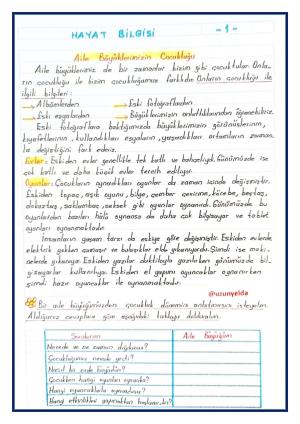 HAYAT BİLGİSİ -1-
Aile Büyüklerimizin Çocukluğu
Aile büyüklerimiz de bir zamanlar bizim gibi çocuktular. Onla-
rın çocukluğu ile bizim çocukluğumuz farklıdır. Onların çocukluğu ile
ilgili bilgileri:
→ Albümlerden → Eski fotoğraflardan
→ Eski eşyalardan → Büyüklerimizin anlattıklarından öğrenebiliriz.
Eski fotoğraflara baktığımızda büyüklerimizin görünüşlerinin,
kıyafetlerinin, kullandıkları eşyaların, yaşadıkları ortamların zaman-
la değiştiğini fark ederiz.
Evler: Eskiden evler genellikle tek katlı ve bahçeliydi. Günümüzde ise
çok katlı ve daha büyük evler tercih ediliyor.
Oyunlar: Çocukların oynadıkları oyunlar da zaman içinde değişmiştir.
Eskiden topaç, aşık oyunu, bilye, çember çevirme, körebe, beştaş,
dokuztaş, saklambaç, seksek gibi oyunlar oynanırdı. Günümüzde bu
oyunlardan bazıları hâlâ oynansa da daha çok bilgisayar ve tablet
oyunları oynanmaktadır.
İnsanların yaşam tarzı da eskiye göre değişmiştir. Eskiden evlerde
elektrik yokken çamaşır ve bulaşıklar elde yıkanıyordu. Şimdi ise maki-
nelerde yıkanıyor. Eskiden yazılar daktiloyla yazılırken günümüzde bil-
gisayarlar kullanılıyor. Eskiden el yapımı oyuncaklar oynanırken
şimdi hazır oyuncaklar ile oynanmaktadır.
@uzunyelda
Bir aile büyüğümüzden çocukluk dönemini anlatmasını isteyelim.
Aldığımız cevaplara göre aşağıdaki tabloyu dolduralım.
Sorularım Aile Büyüğüm
Nerede ve ne zaman doğdunuz?
Çocukluğunuz nerede geçti?
Nasıl bir evde büyüdünüz?
Çocukken hangi oyunları oynardınız?
Hangi oyuncaklarla oynardınız?
Hangi etkinlikleri yapmaktan hoşlanırdınız?